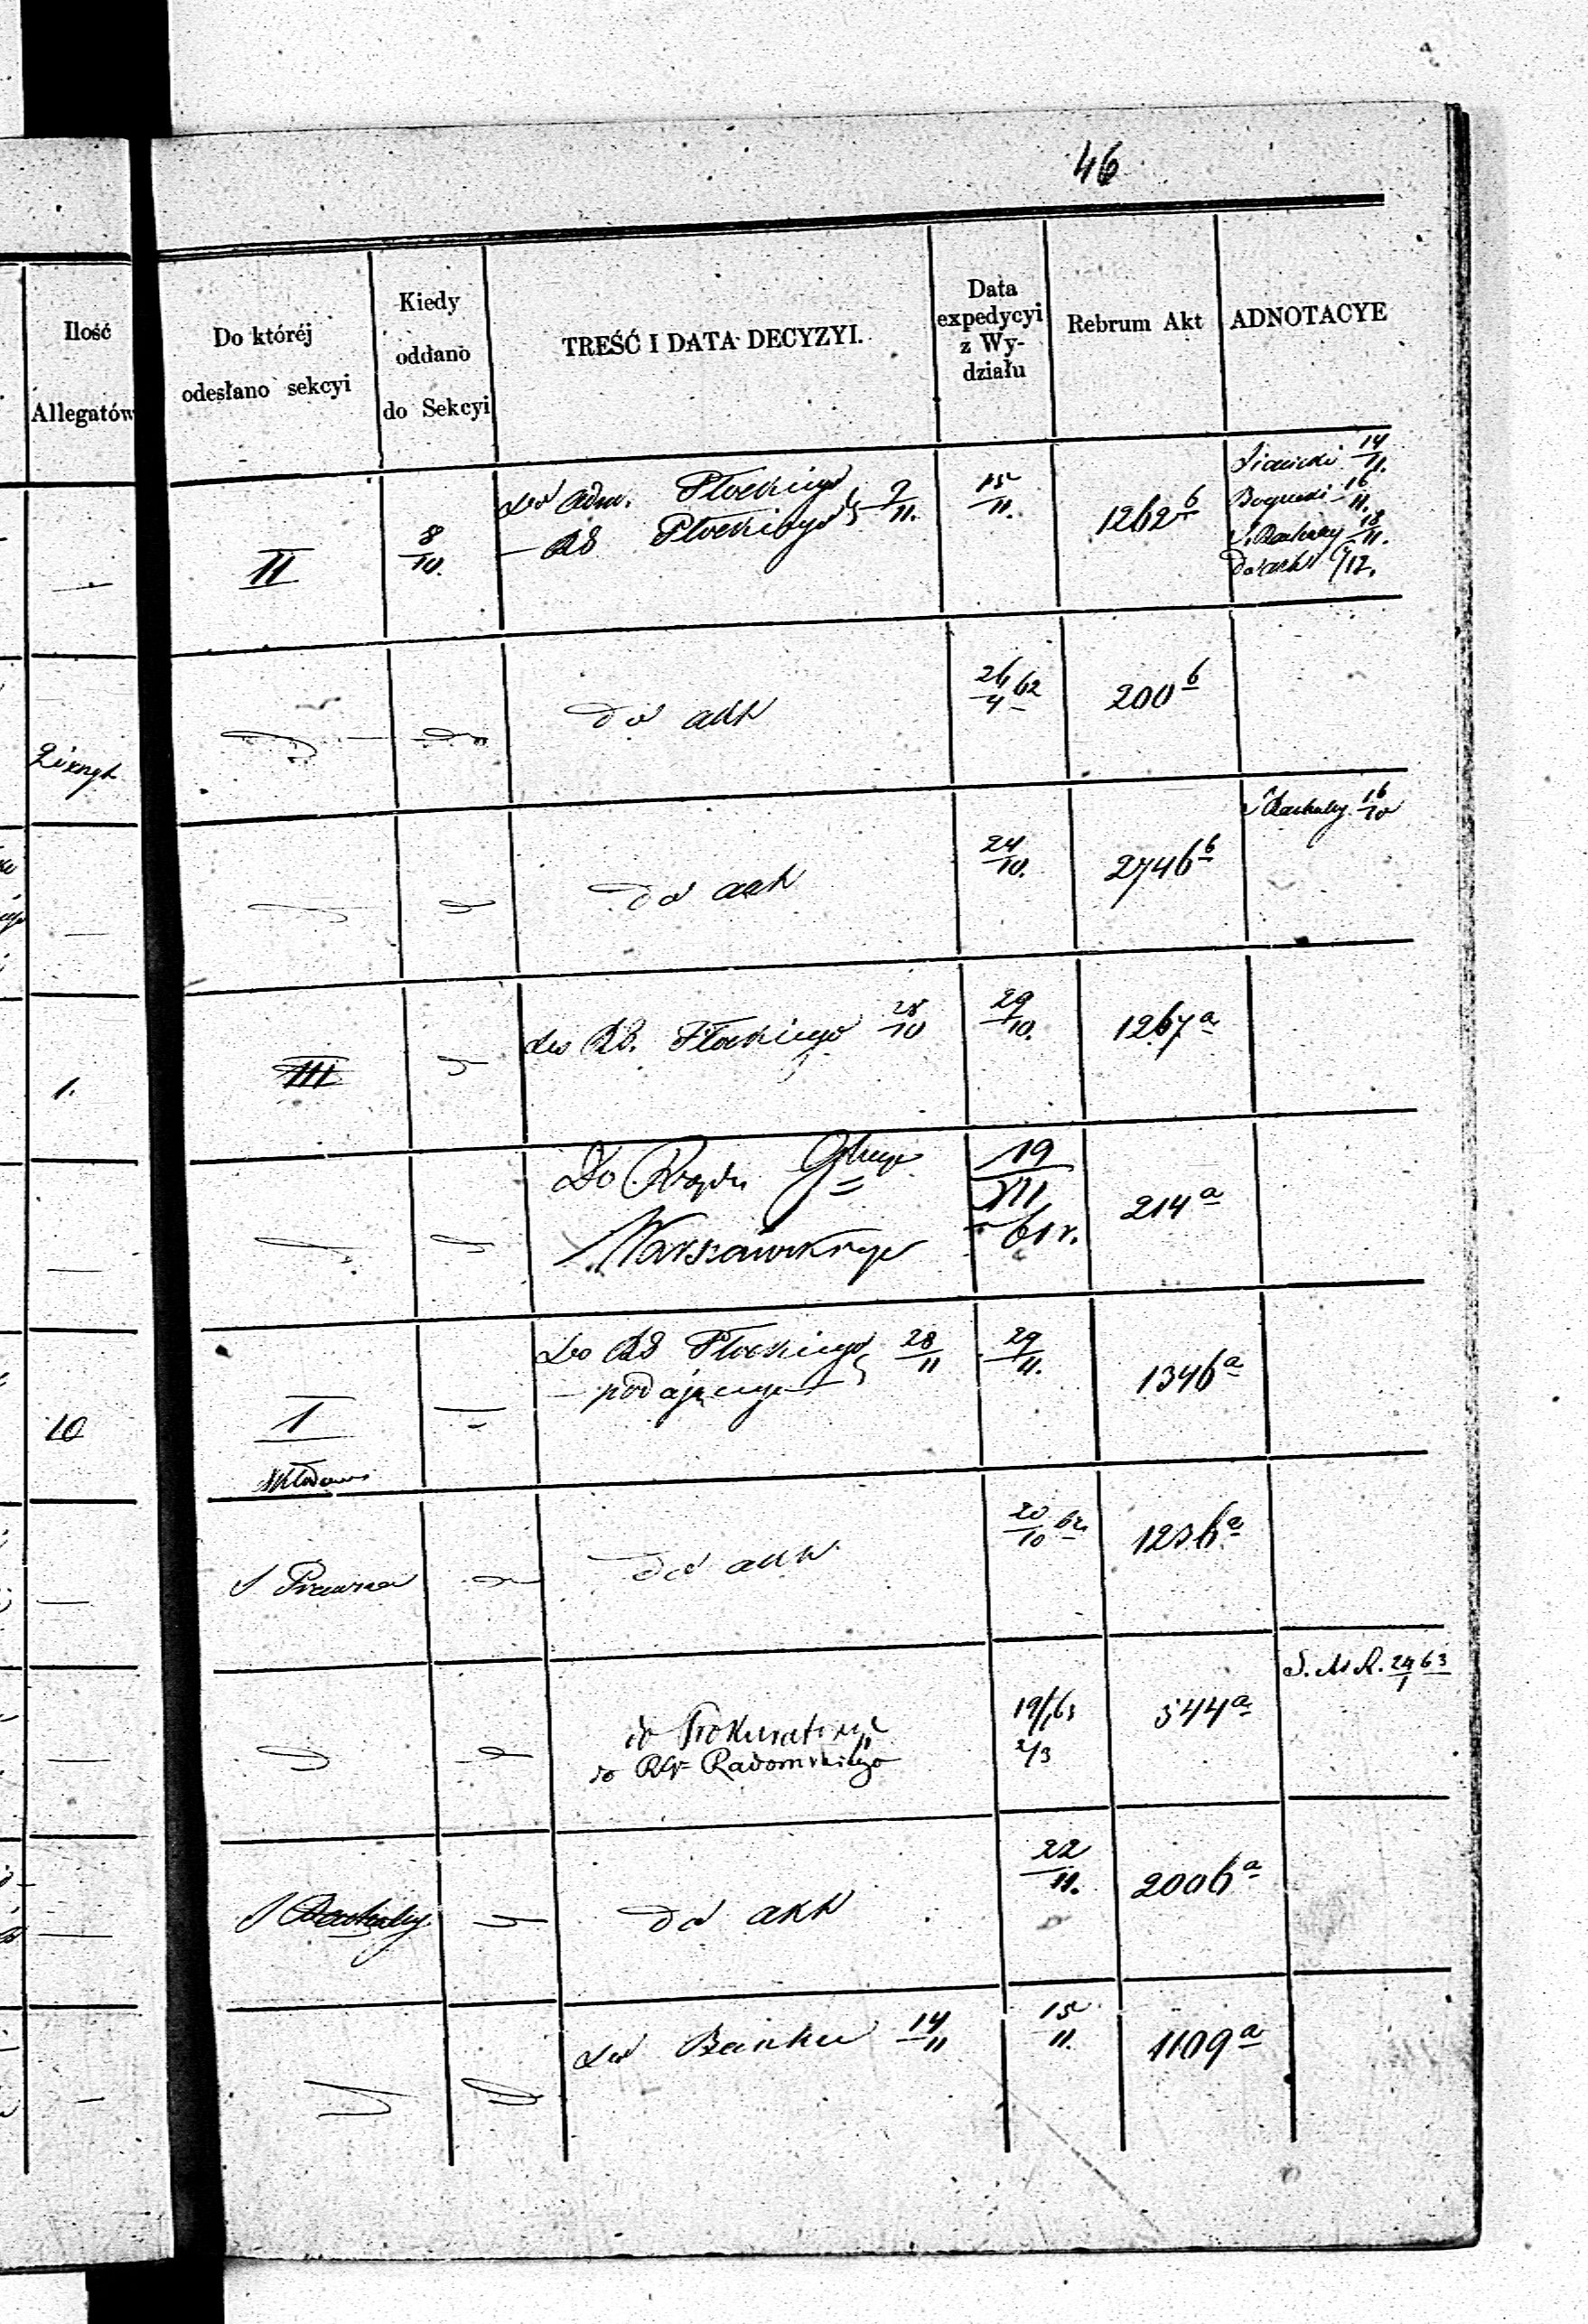 46
Ilość
Allegatów
Do któréj
odesłano sekcyi
Kiedy
oddano
do Sekcyi
TREŚĆ I DATA DECYZYI.
Data
expedycyi
z Wy-
działu
Rebrum Akt
ADNOTACYE
II
8/10.
do Adm. Płockiego
— RG Płockiego 9/11.
15/11.
1262 b
14/11.
16/11.
18/11.
do akt /12.
do akt
26/4 62
200 b
do akt
24/10.
2746 b
16/10
1.
III
do RG. Płockiego 28/10
29/10.
1267 a
Do Rządu Gbrgo
Warszawskiego
19/XII
61 r.
214 a
10
I
do RG Płockiego 28/11
— podającego
29/11.
1346 a
S Prawna
do akt
20/10 62
1236 a
do Prokuratoryi
do RGr Radomskiego
19/1 63
2/3
544 a
S. M R. 24/1 63
do akt
22/11.
2006 a
do Banku 14/11
15/11.
1109 a